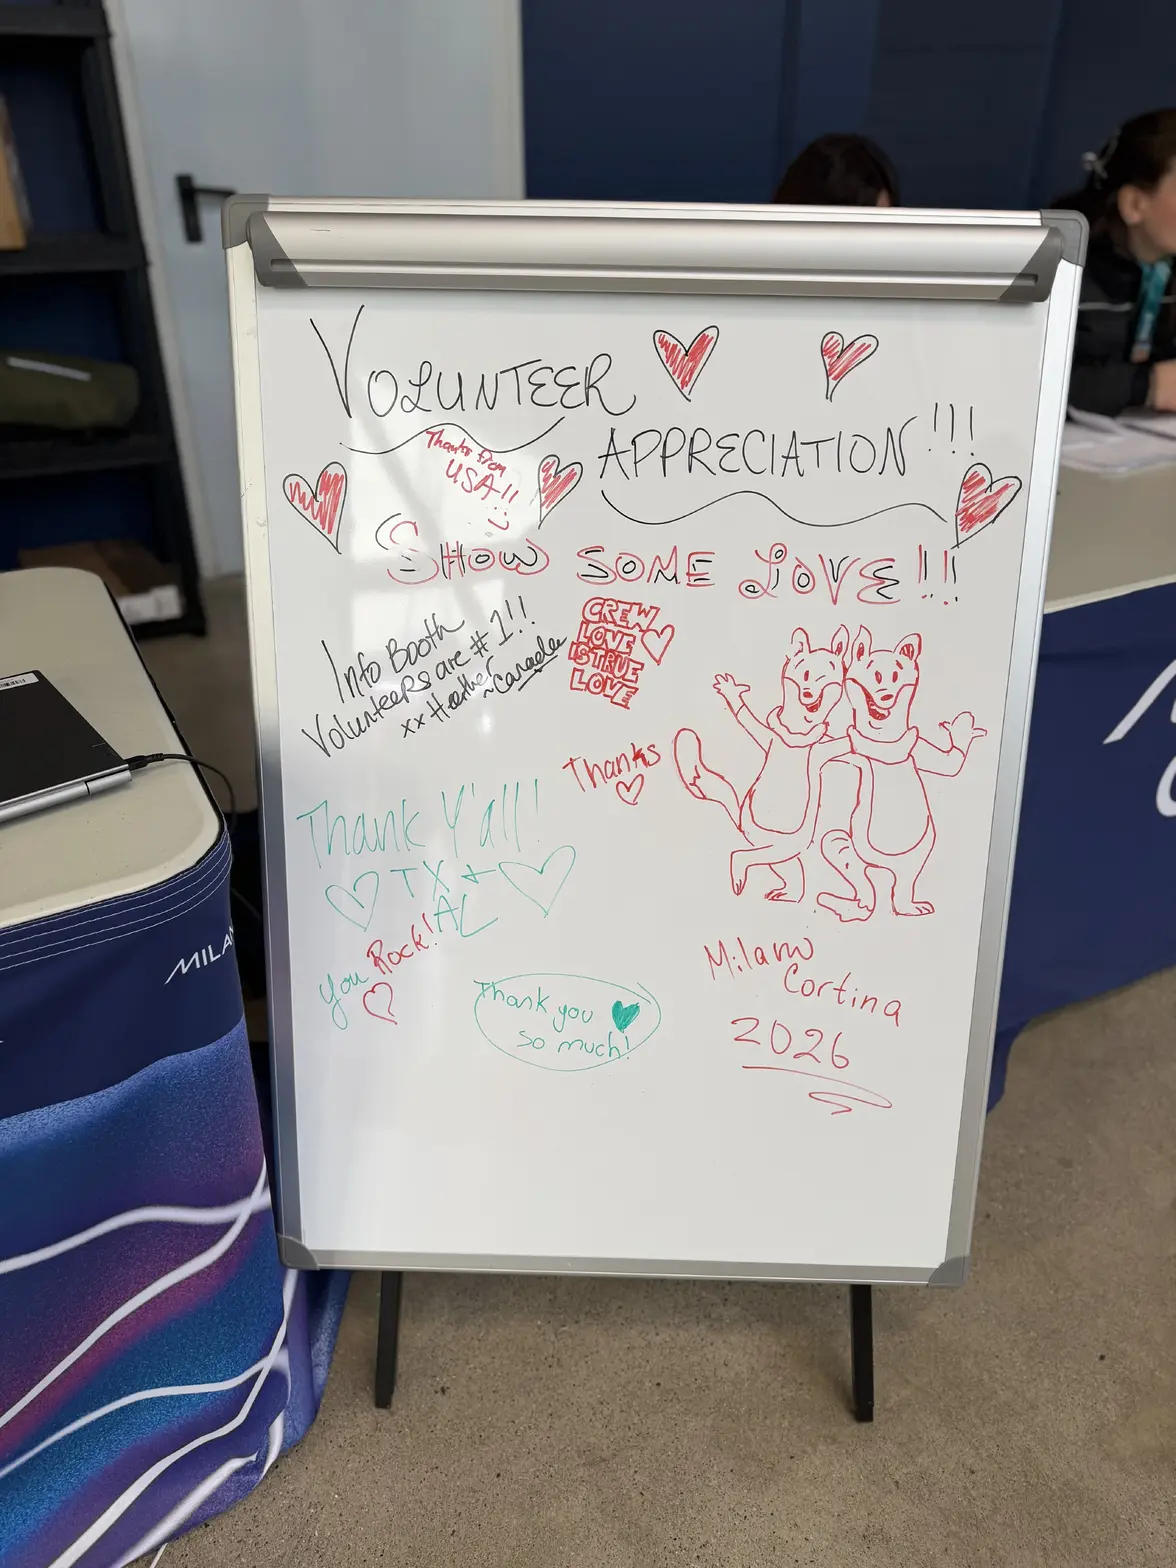 VOLUNTEER
APPRECIATION!!!
Thanks from
USA!!
SHOW SOME LOVE!!!
Info Booth
Volunteers are #1!!
xx Heather Canada
CREW
LOVE
IS TRUE
LOVE
Thanks
Thank Y'all!
TX +
AL
You Rock!
Thank you
so much!
Milano
Cortina
2026
MILA